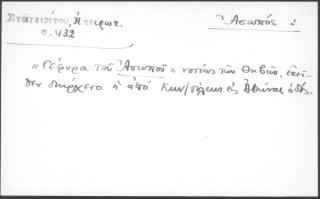 Σταγειρίτου, Ἠπειρωτ. Ἀσωπός
σ. 432
"Γέφυρα τοῦ Ἀσωποῦ" νοτίως τῶν Θηβῶν, ἐκεῖ-
θεν διήρχετο ἡ ἀπὸ Κων/πόλεως εἰς Ἀθήνας ὁδός.